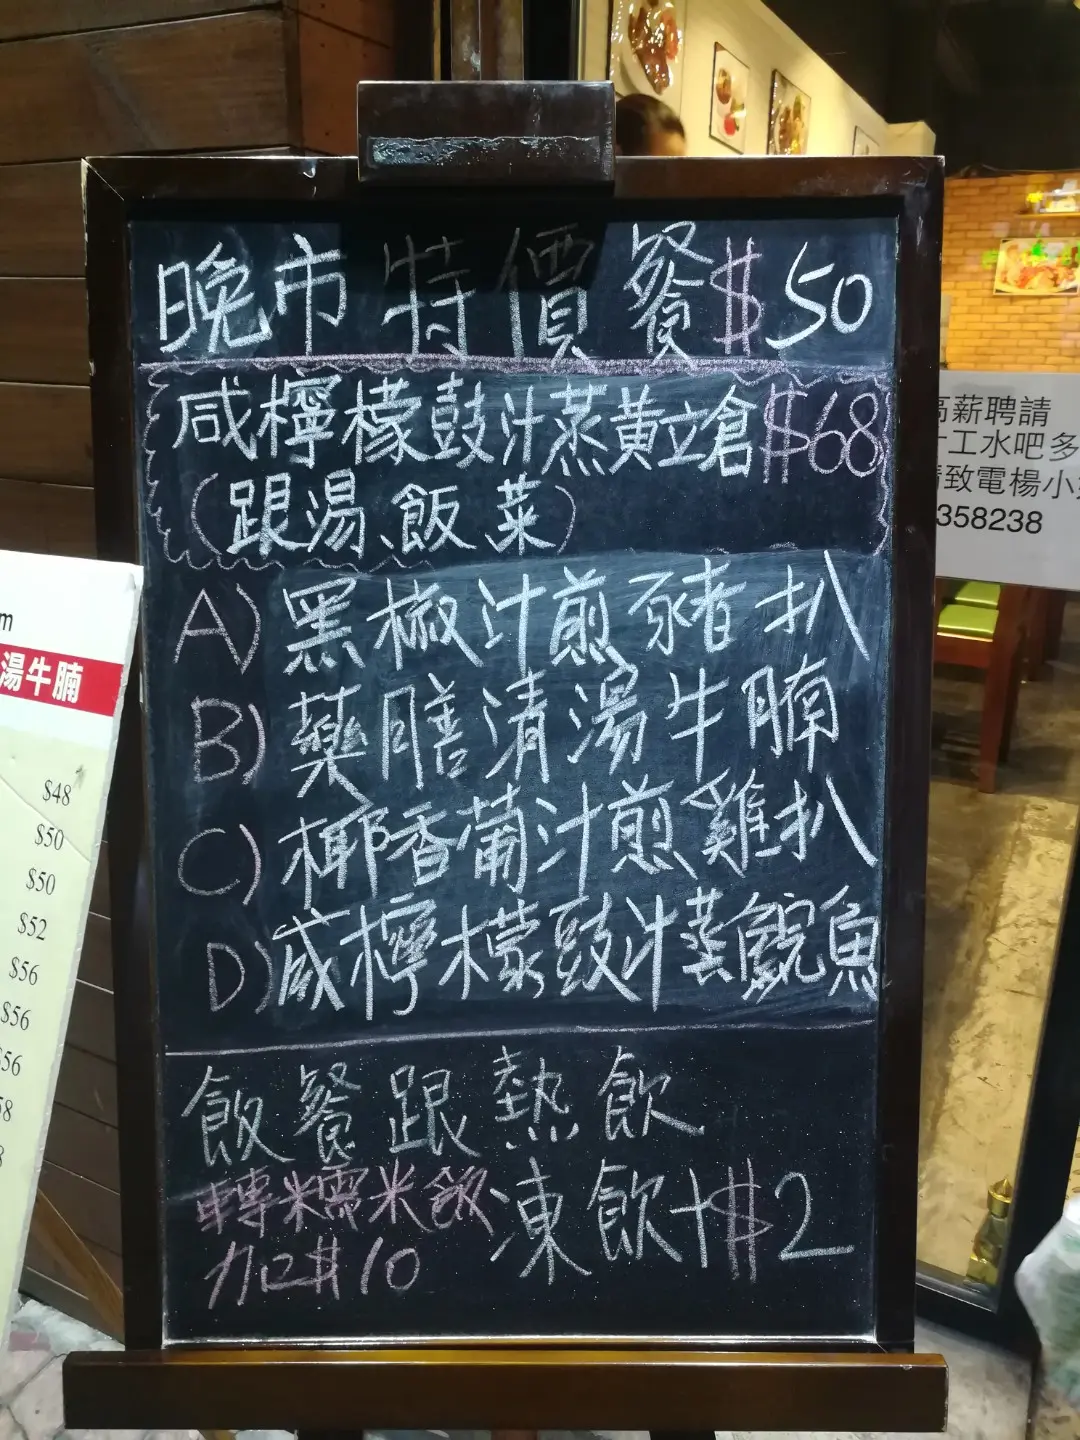 晚市特價餐$50
咸檸檬鼓汁蒸黃立倉$68
(跟湯、飯、菜)
A) 黑椒汁煎豬扒
B) 藥膳清湯牛腩
C) 椰香葡汁煎雞扒
D) 咸檸檬豉汁蒸鯇魚
飯餐跟熱飲
凍飲+$2
轉糯米飯
加$10
m
湯牛腩
$48
$50
$50
$52
$56
$56
56
高薪聘請
工水吧多
致電楊小
358238